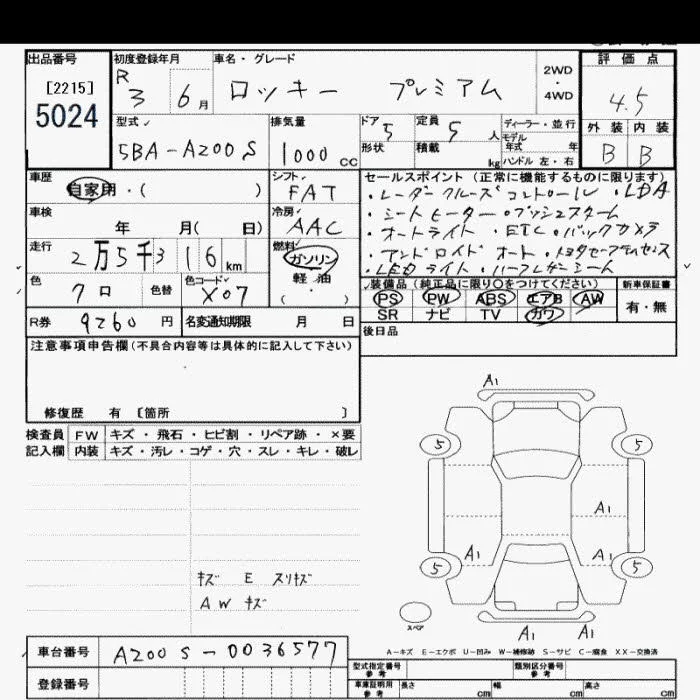 出品番号
[2215]
5024
初度登録年月
R 3 6月
車名・グレード
ロッキー プレミアム
2WD
・
4WD
評価点
4.5
外装 内装
B B
型式
5BA-A200S
排気量
1000 CC
ドア 5
形状
定員 5 人
積載 kg
ディーラー・並行
モデル
年式 年
ハンドル 左・右
車歴
自家用・( )
シフト
FAT
車検
年 月( 日)
冷房
AAC
走行
2万5千316km
燃料
ガソリン
軽油
( ・ )
色
クロ
色替
色コード
X07
R券 9260 円
名変通知期限 月 日
セールスポイント(正常に機能するものに限ります)
・レーダークルーズコントロール ・LDA
・シートヒーター ・プッシュスタート
・オートライト ・ETC ・バックカメラ
・アンドロイド オート ・トヨタセーフティセンス
・LEDライト ・ハーフレザーシート
装備品(純正品に限り○をつけてください)
PS PW ABS エアB AW
SR ナビ TV ガワ
新車保証書
有・無
後日品
注意事項申告欄(不具合内容等は具体的に記入して下さい)
修復歴 有 〔箇所 〕
検査員 FW キズ・飛石・ヒビ割・リペア跡・×要
記入欄 内装 キズ・汚レ・コゲ・穴・スレ・キレ・破レ
キズ E スリキズ
AW キズ
A1
5 5
A1
A1 A1
5 5
スペア
A1 A1
A-キズ E-エクボ U-凹み W-補修跡 S-サビ C-腐食 XX-交換済
車台番号 A200S-0036577
登録番号
型式指定番号
参考
類別区分番号
参考
車庫証明用
参考
長さ cm 幅 cm 高さ cm